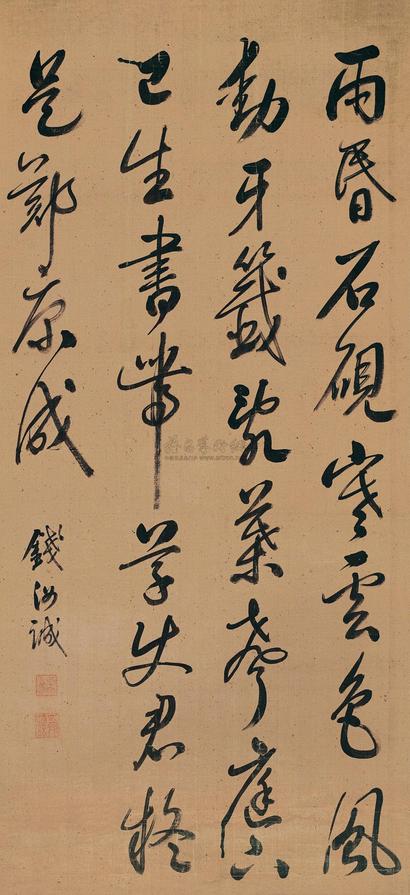 雨昏石硯寒雲色風
動牙籤亂葉聲庭下
已生書帶草使君疑
是鄭康成
錢汝誠